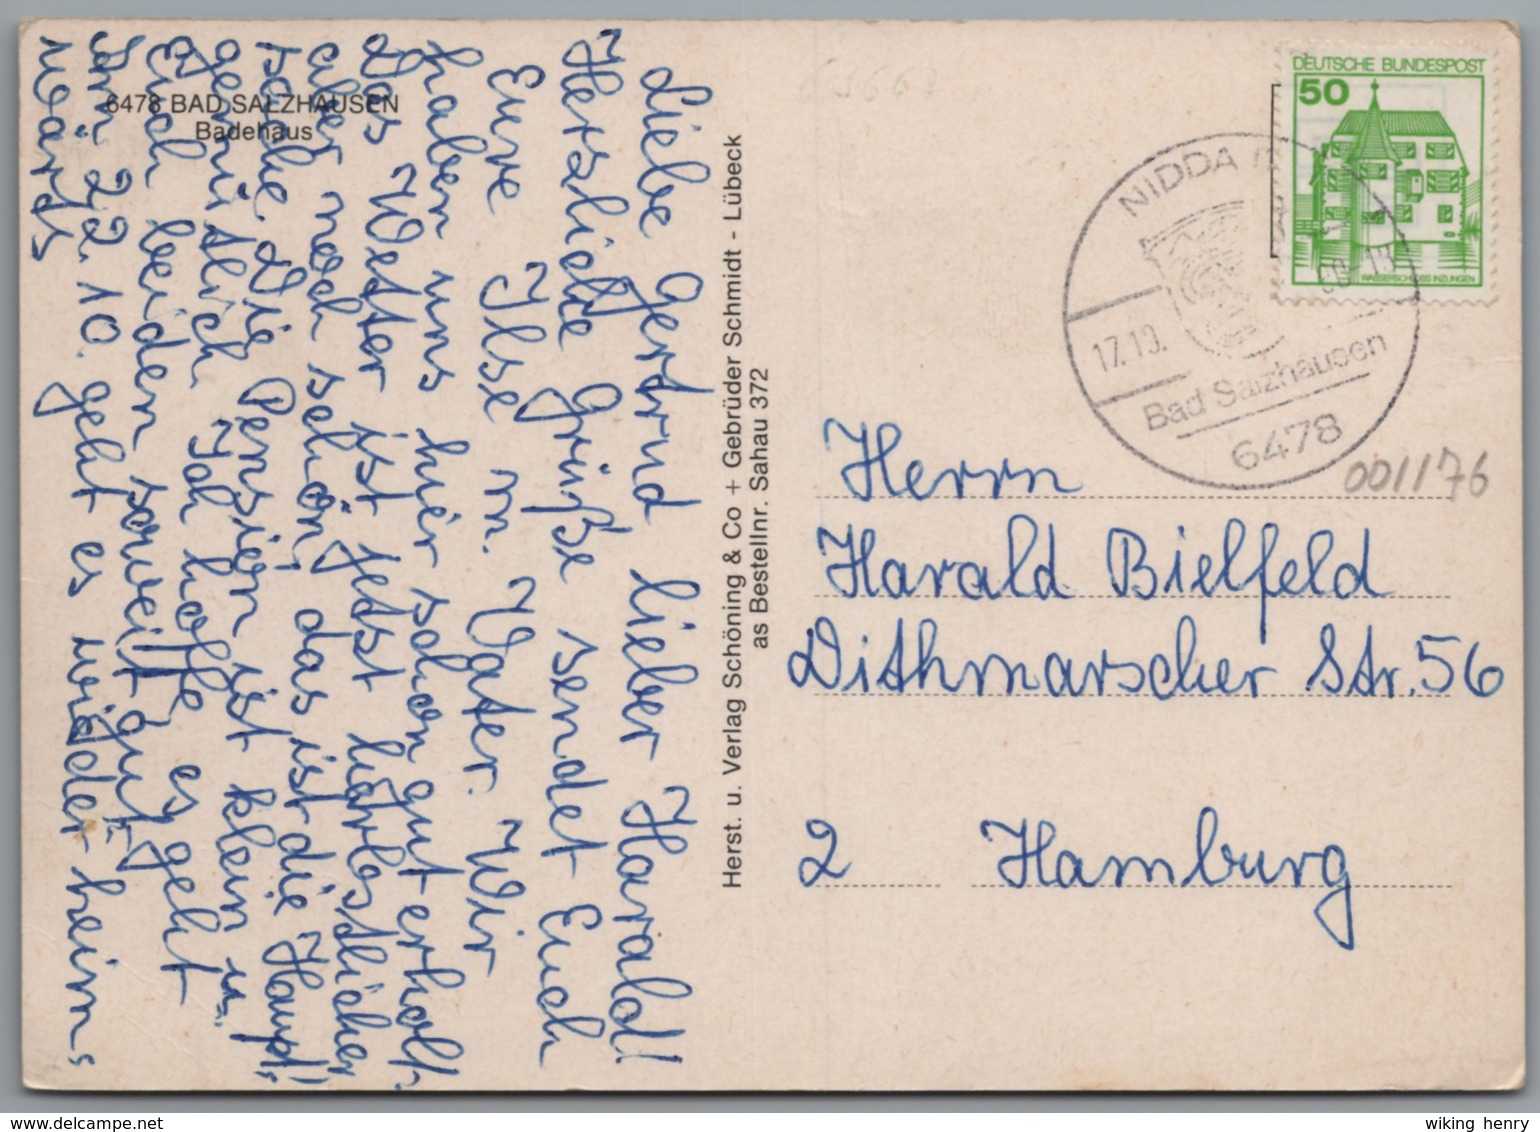 6478 BAD SALZHAUSEN
Badehaus
Liebe Gertrud lieber Harald!
Herzliche Grüße sendet Euch
Eure Ilse m. Vater. Wir
haben uns hier schon gut erholt.
Das Wetter ist jetzt herbstlicher
aber noch schön, das ist die Haupt=
sache. Die Pension ist klein u.
gemütlich. Ich hoffe es geht
Euch beiden soweit gut.
Am 22.10. geht es wieder heim=
wärts
Herst. u. Verlag Schöning & Co + Gebrüder Schmidt - Lübeck
as Bestellnr. Sahau 372
DEUTSCHE BUNDESPOST
50
WASSERSCHLOSS INZLINGEN
NIDDA
17.10.
80-13
Bad Salzhausen
6478
001176
Herrn
Harald Bielfeld
Dithmarscher Str. 56
2 Hamburg
www.delcampe.net
wiking henry